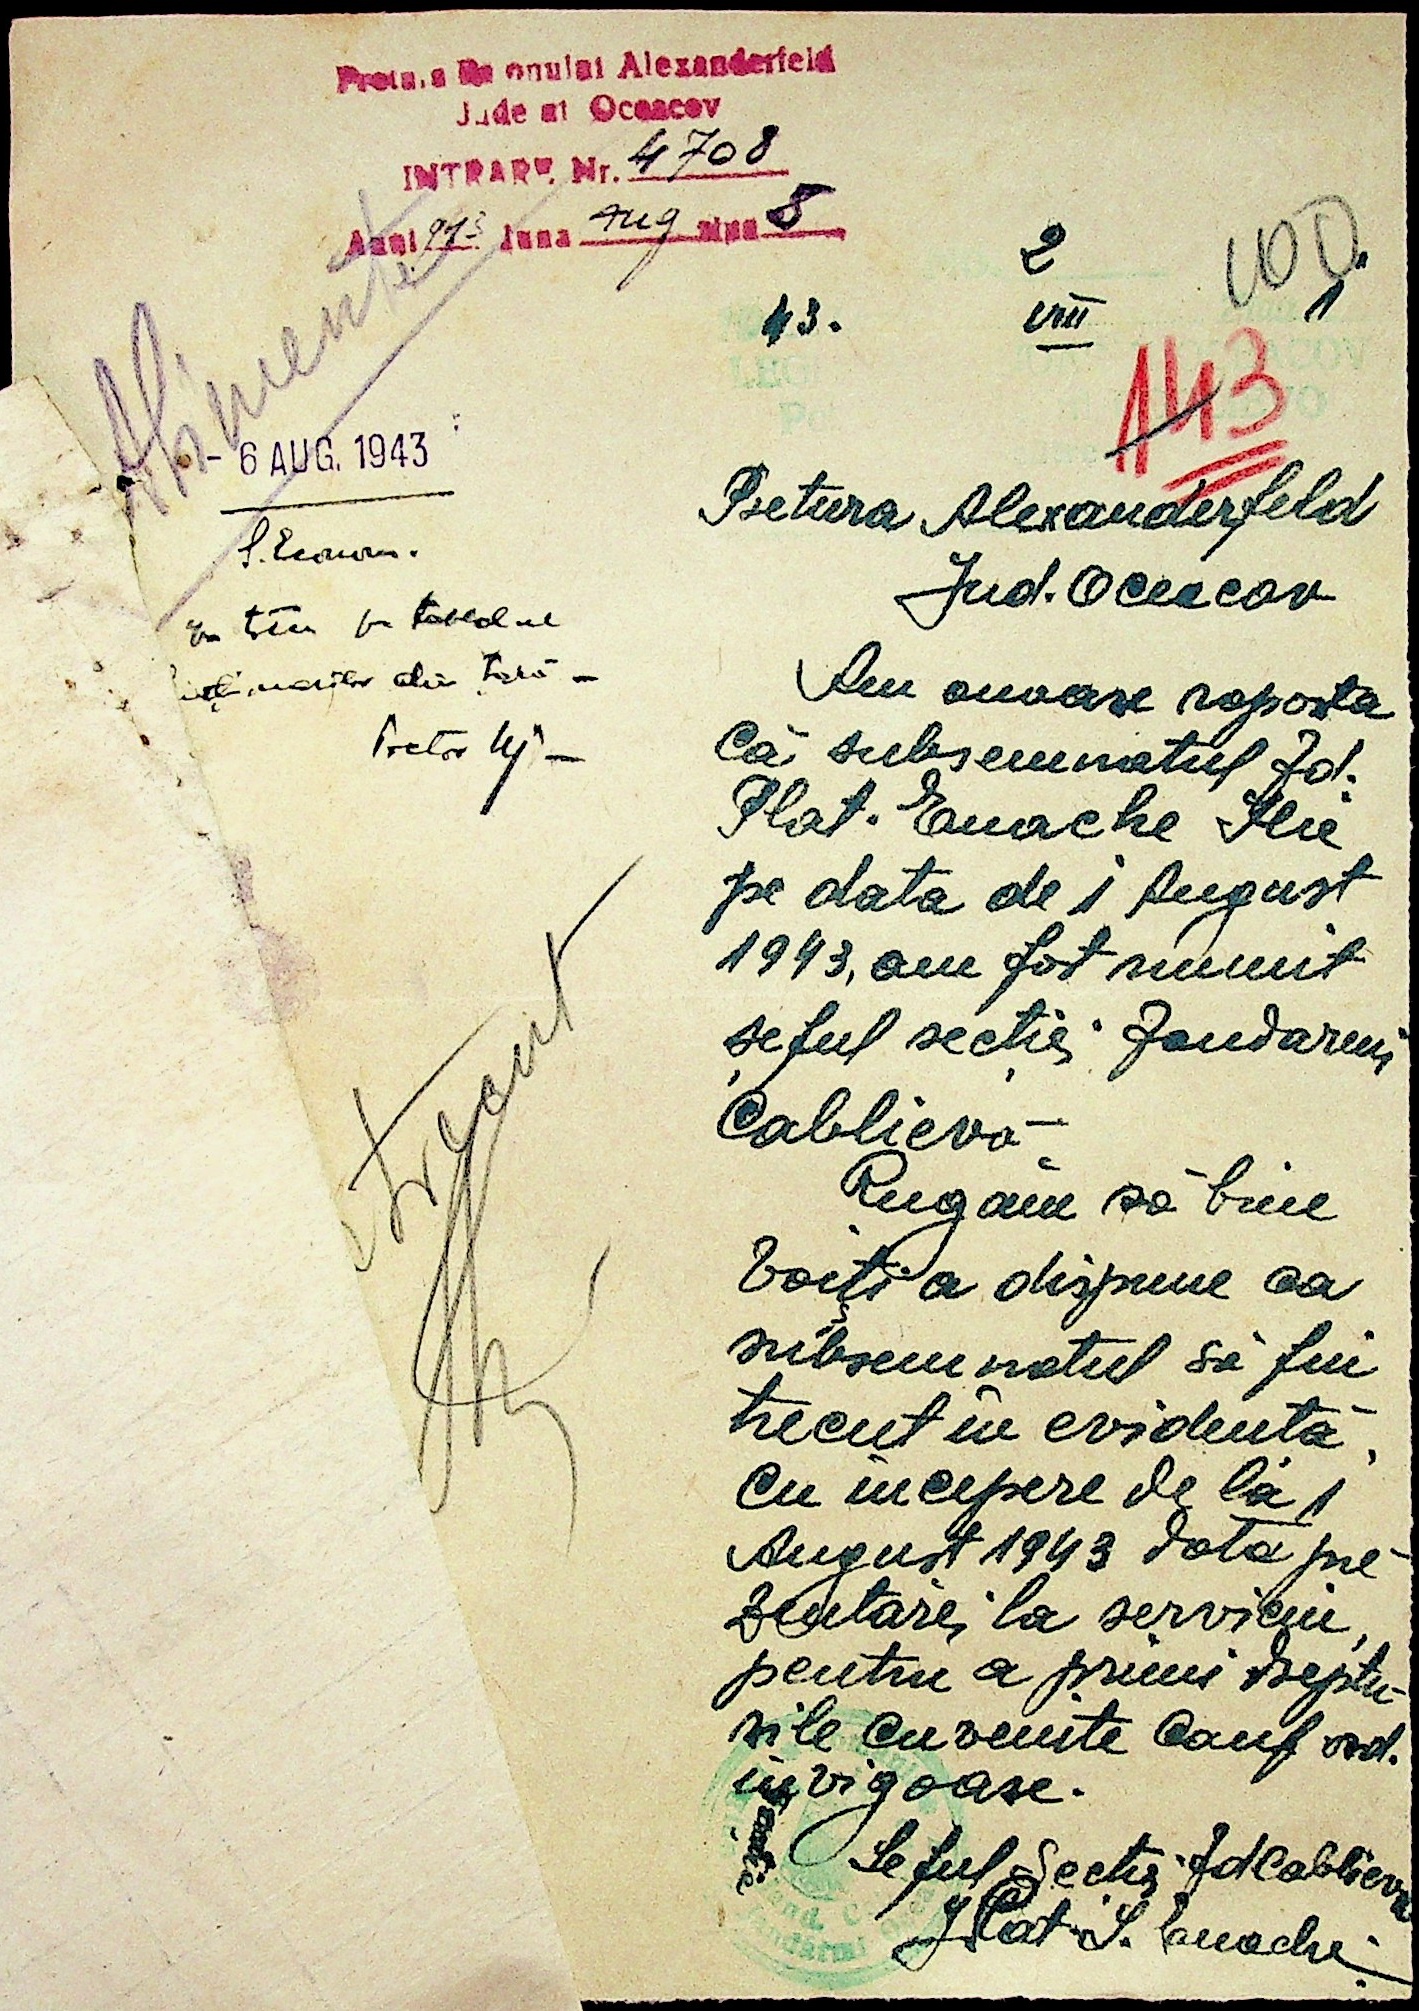 Pretura Raionului Alexanderfeld
Judeţul Oceacov
INTRARE Nr. 4708
Anul 943 luna Aug ziua 8
2
100
43. VIII 1
143
Alimente
- 6 AUG. 1943
S. Econom.
tabelul
din ţară -
Pretor
Urgent
Pretura Alexanderfeld
Jud. Oceacov
Am onoare raporta
că subsemnatul Jd.
Plat. Enache Ilie
pe data de 1 August
1943, am fot numit
şeful secţiei Jandarmi
Cablieva.
Rugăm să bine
voiţi a dispune ca
subsemnatul să fiu
trecut în evidenţă,
cu începere de la 1
August 1943 data pre-
zentărei la serviciu,
pentru a primi dreptu-
rile cuvenite conf ord.
în vigoare.
Şeful Secţiei Jd Cablieva
Plat. I. Enache